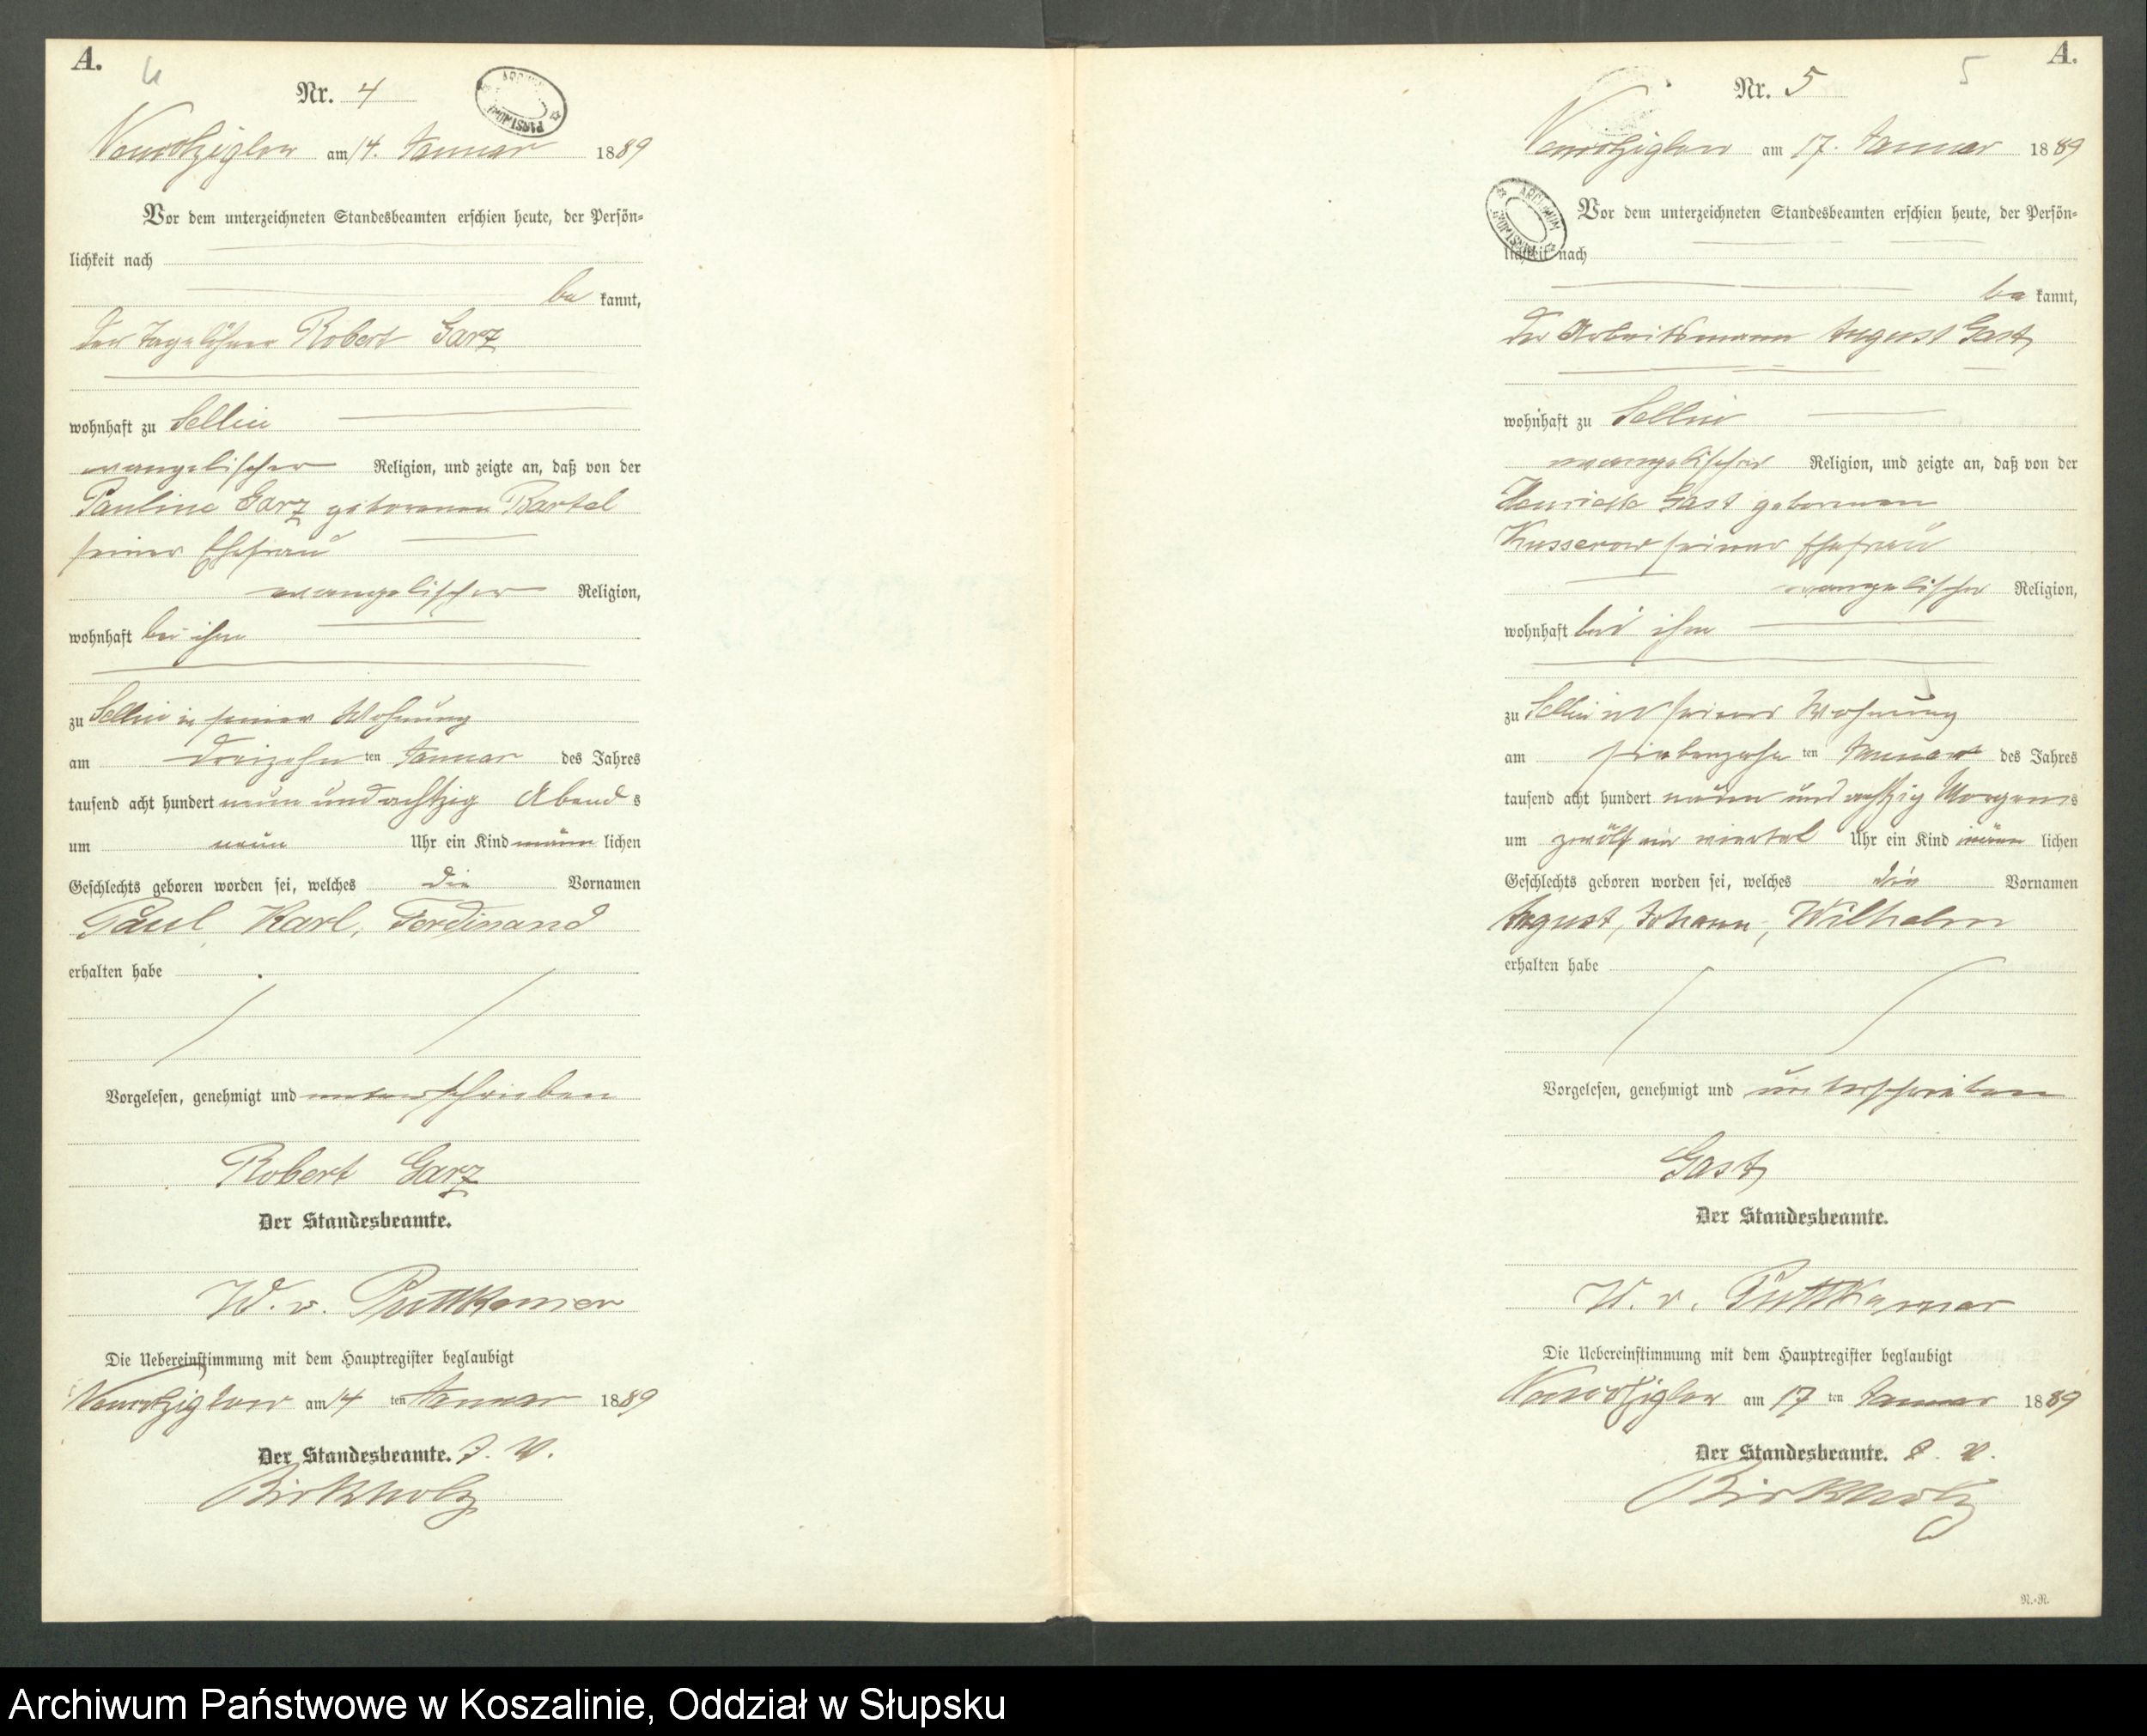 A.
4
Nr. 4
Neurohziglow am 14. Januar 1889
Vor dem unterzeichneten Standesbeamten erschien heute, der Persön-
lichkeit nach
be kannt,
der Tagelöhner Robert Garz
wohnhaft zu Sellin
evangelischer Religion, und zeigte an, daß von der
Pauline Garz geborenen Bartel
seiner Ehefrau
evangelischer Religion,
wohnhaft bei ihm
zu Sellin in seiner Wohnung
am dreizehn ten Januar des Jahres
tausend acht hundert neun und achtzig Abend s
um neun Uhr ein Kind männ lichen
Geschlechts geboren worden sei, welches die Vornamen
Paul, Karl, Ferdinand
erhalten habe
Vorgelesen, genehmigt und unterschrieben
Robert Garz
Der Standesbeamte.
W. v. Puttkamer
Die Uebereinstimmung mit dem Hauptregister beglaubigt
am 14 ten Januar 1889
Der Standesbeamte. J. V.
Birkholz
A.
5
Nr. 5
am 17. Januar 1889
ARCHIWUM
Vor dem unterzeichneten Standesbeamten erschien heute, der Persön-
lichkeit nach
be kannt,
der Arbeitsmann August Gast
wohnhaft zu Sellin
evangelischer Religion, und zeigte an, daß von der
Henriette Gast geborenen
Kusserow seiner Ehefrau
evangelischer Religion,
wohnhaft bei ihm
zu Sellin in seiner Wohnung
am siebenzehn ten Januar des Jahres
tausend acht hundert neun und achtzig Morgens
um zwölf ein viertel Uhr ein Kind männ lichen
Geschlechts geboren worden sei, welches die Vornamen
August, Johann, Wilhelm
erhalten habe
Vorgelesen, genehmigt und unterschrieben
Gast
Der Standesbeamte.
W. v. Puttkamer
Die Uebereinstimmung mit dem Hauptregister beglaubigt
am 17 ten Januar 1889
Der Standesbeamte. J. V.
Birkholz
N.-N.
Archiwum Państwowe w Koszalinie, Oddział w Słupsku